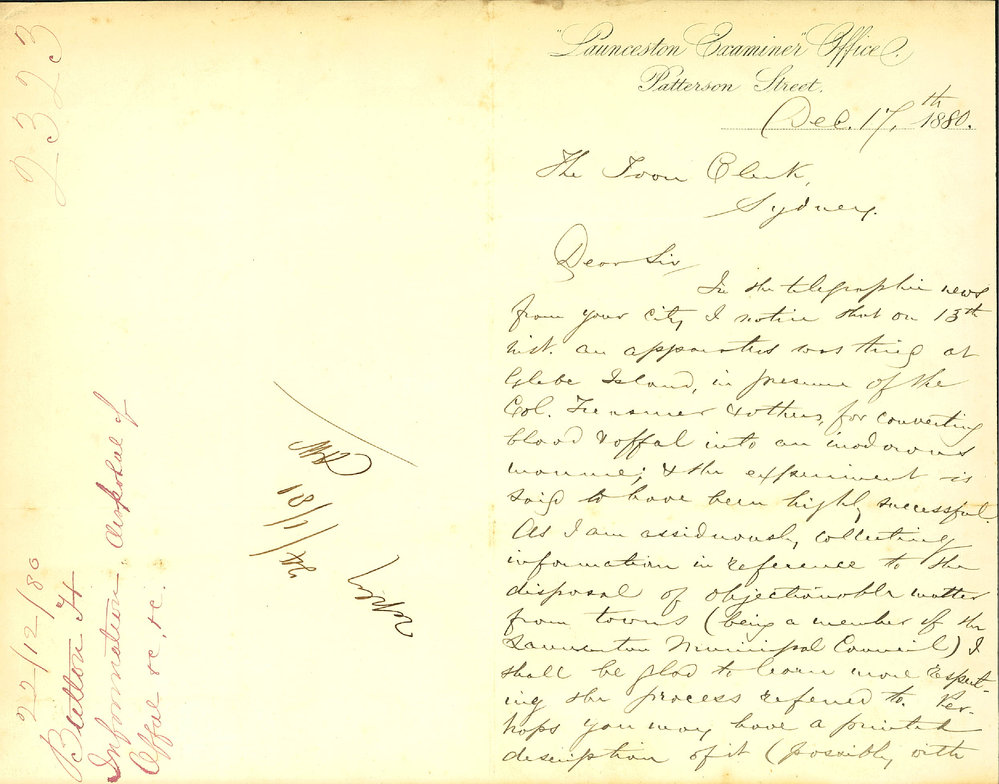 2323
22/12/80
Button H
Information. disposal of
Offal &c, &c.
reply
24/1/81
"Launceston Examiner" Office,
Patterson Street.
Dec. 17th, 1880.
The Town Clerk,
Sydney.
Dear Sir,
In the telegraphic news
from your city, I notice that on 13th
inst. an apparatus was tried at
Glebe Island, in presence of the
Col. Treasurer & others, for converting
blood & offal into an inodorous
manure; & the experiment is
said to have been highly successful.
As I am assiduously collecting
information in reference to the
disposal of objectionable matter
from towns (being a member of the
Launceston Municipal Council) I
shall be glad to learn more respect-
ing the process referred to. Per-
haps you may have a printed
description of it (possibly with